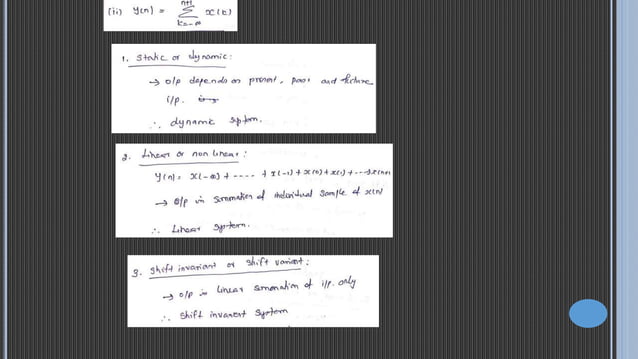 (ii) y(n) = n+1 Σ k=-∞ x(k)
1. Static or dynamic:
→ o/p depends on present, past and future
i/p.
∴ dynamic system.
2. Linear or non linear:
y(n) = x(-∞) + ---- + x(-1) + x(n) + x(1) + ---- x(n+1)
→ o/p is summation of individual sample of x(n)
∴ Linear system.
3. Shift invariant or shift variant:
→ o/p is linear summation of i/p. only
∴ Shift invarient system